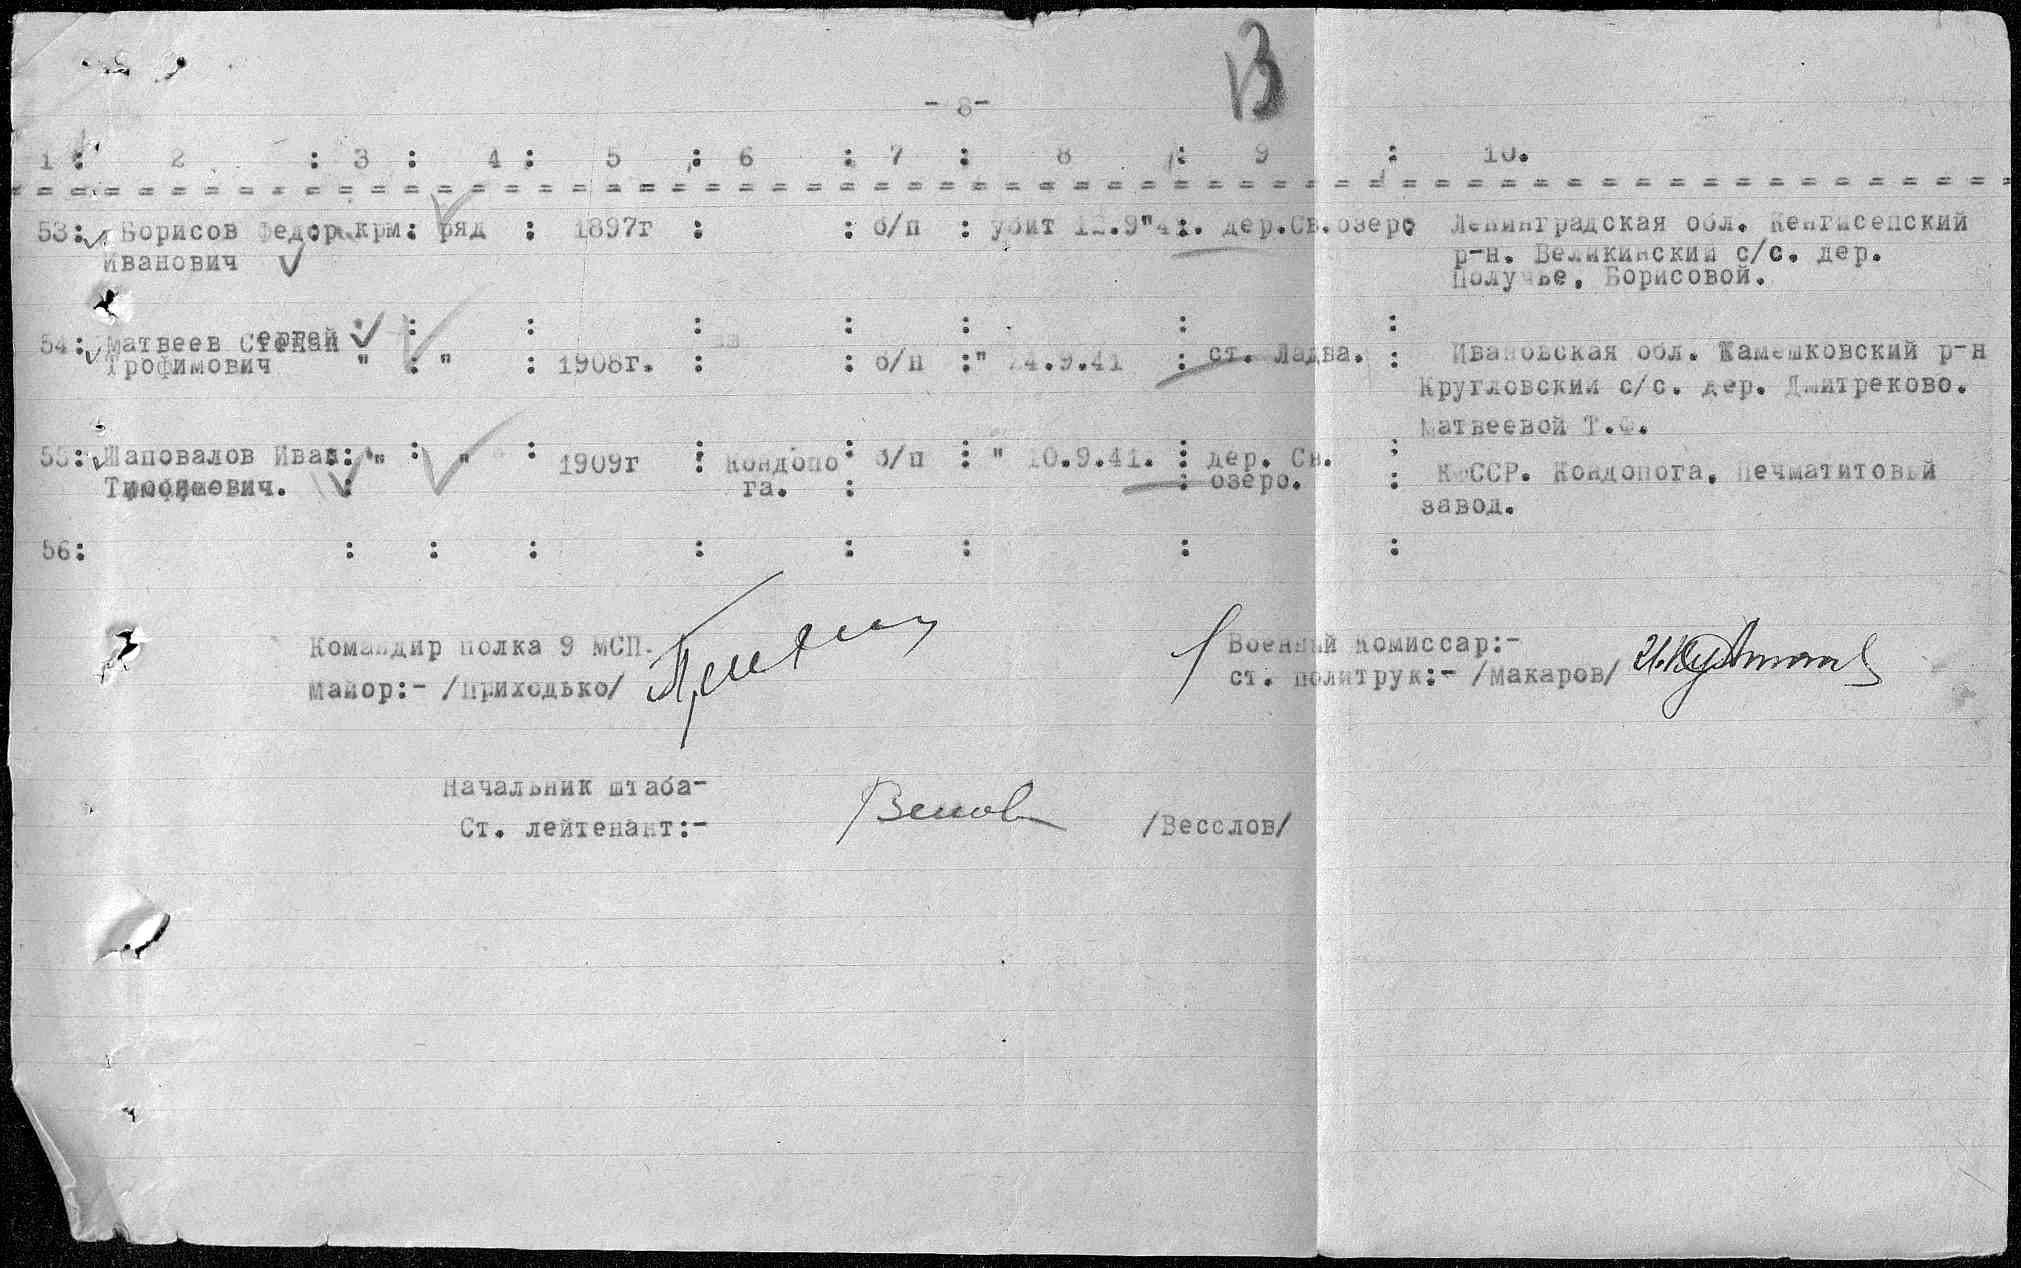 13
- 8-
1 : 2 : 3 : 4 : 5 : 6 : 7 : 8 : 9 : 10.
53: Борисов Федор крм: ряд : 1897г : : б/п : убит 12.9"4 : дер.Св.озеро Ленинградская обл. Кенгисепский
Иванович р-н. Великинский с/с. дер.
Получье, Борисовой.
ергей
54: Матвеев
Трофимович " : " : 1908г. : : б/п :" 24.9.41 : ст. Ладва. : Ивановская обл. Камешковский р-н
Кругловский с/с. дер. Дмитреково.
Матвеевой Т.Ф.
55: Шаповалов Иван: " : " : 1909г : Кондопо : б/п : " 10.9.41. : дер. Св. : КФССР. Кондопога, Печматитовый
га. : : озеро. : завод.
56: : : : : : : : :
Командир полка 9 МСП. Военный Комиссар:-
Майор:- /Приходько/ ст. политрук:- /Макаров/
Начальник штаба-
Ст. лейтенант:- /Весслов/